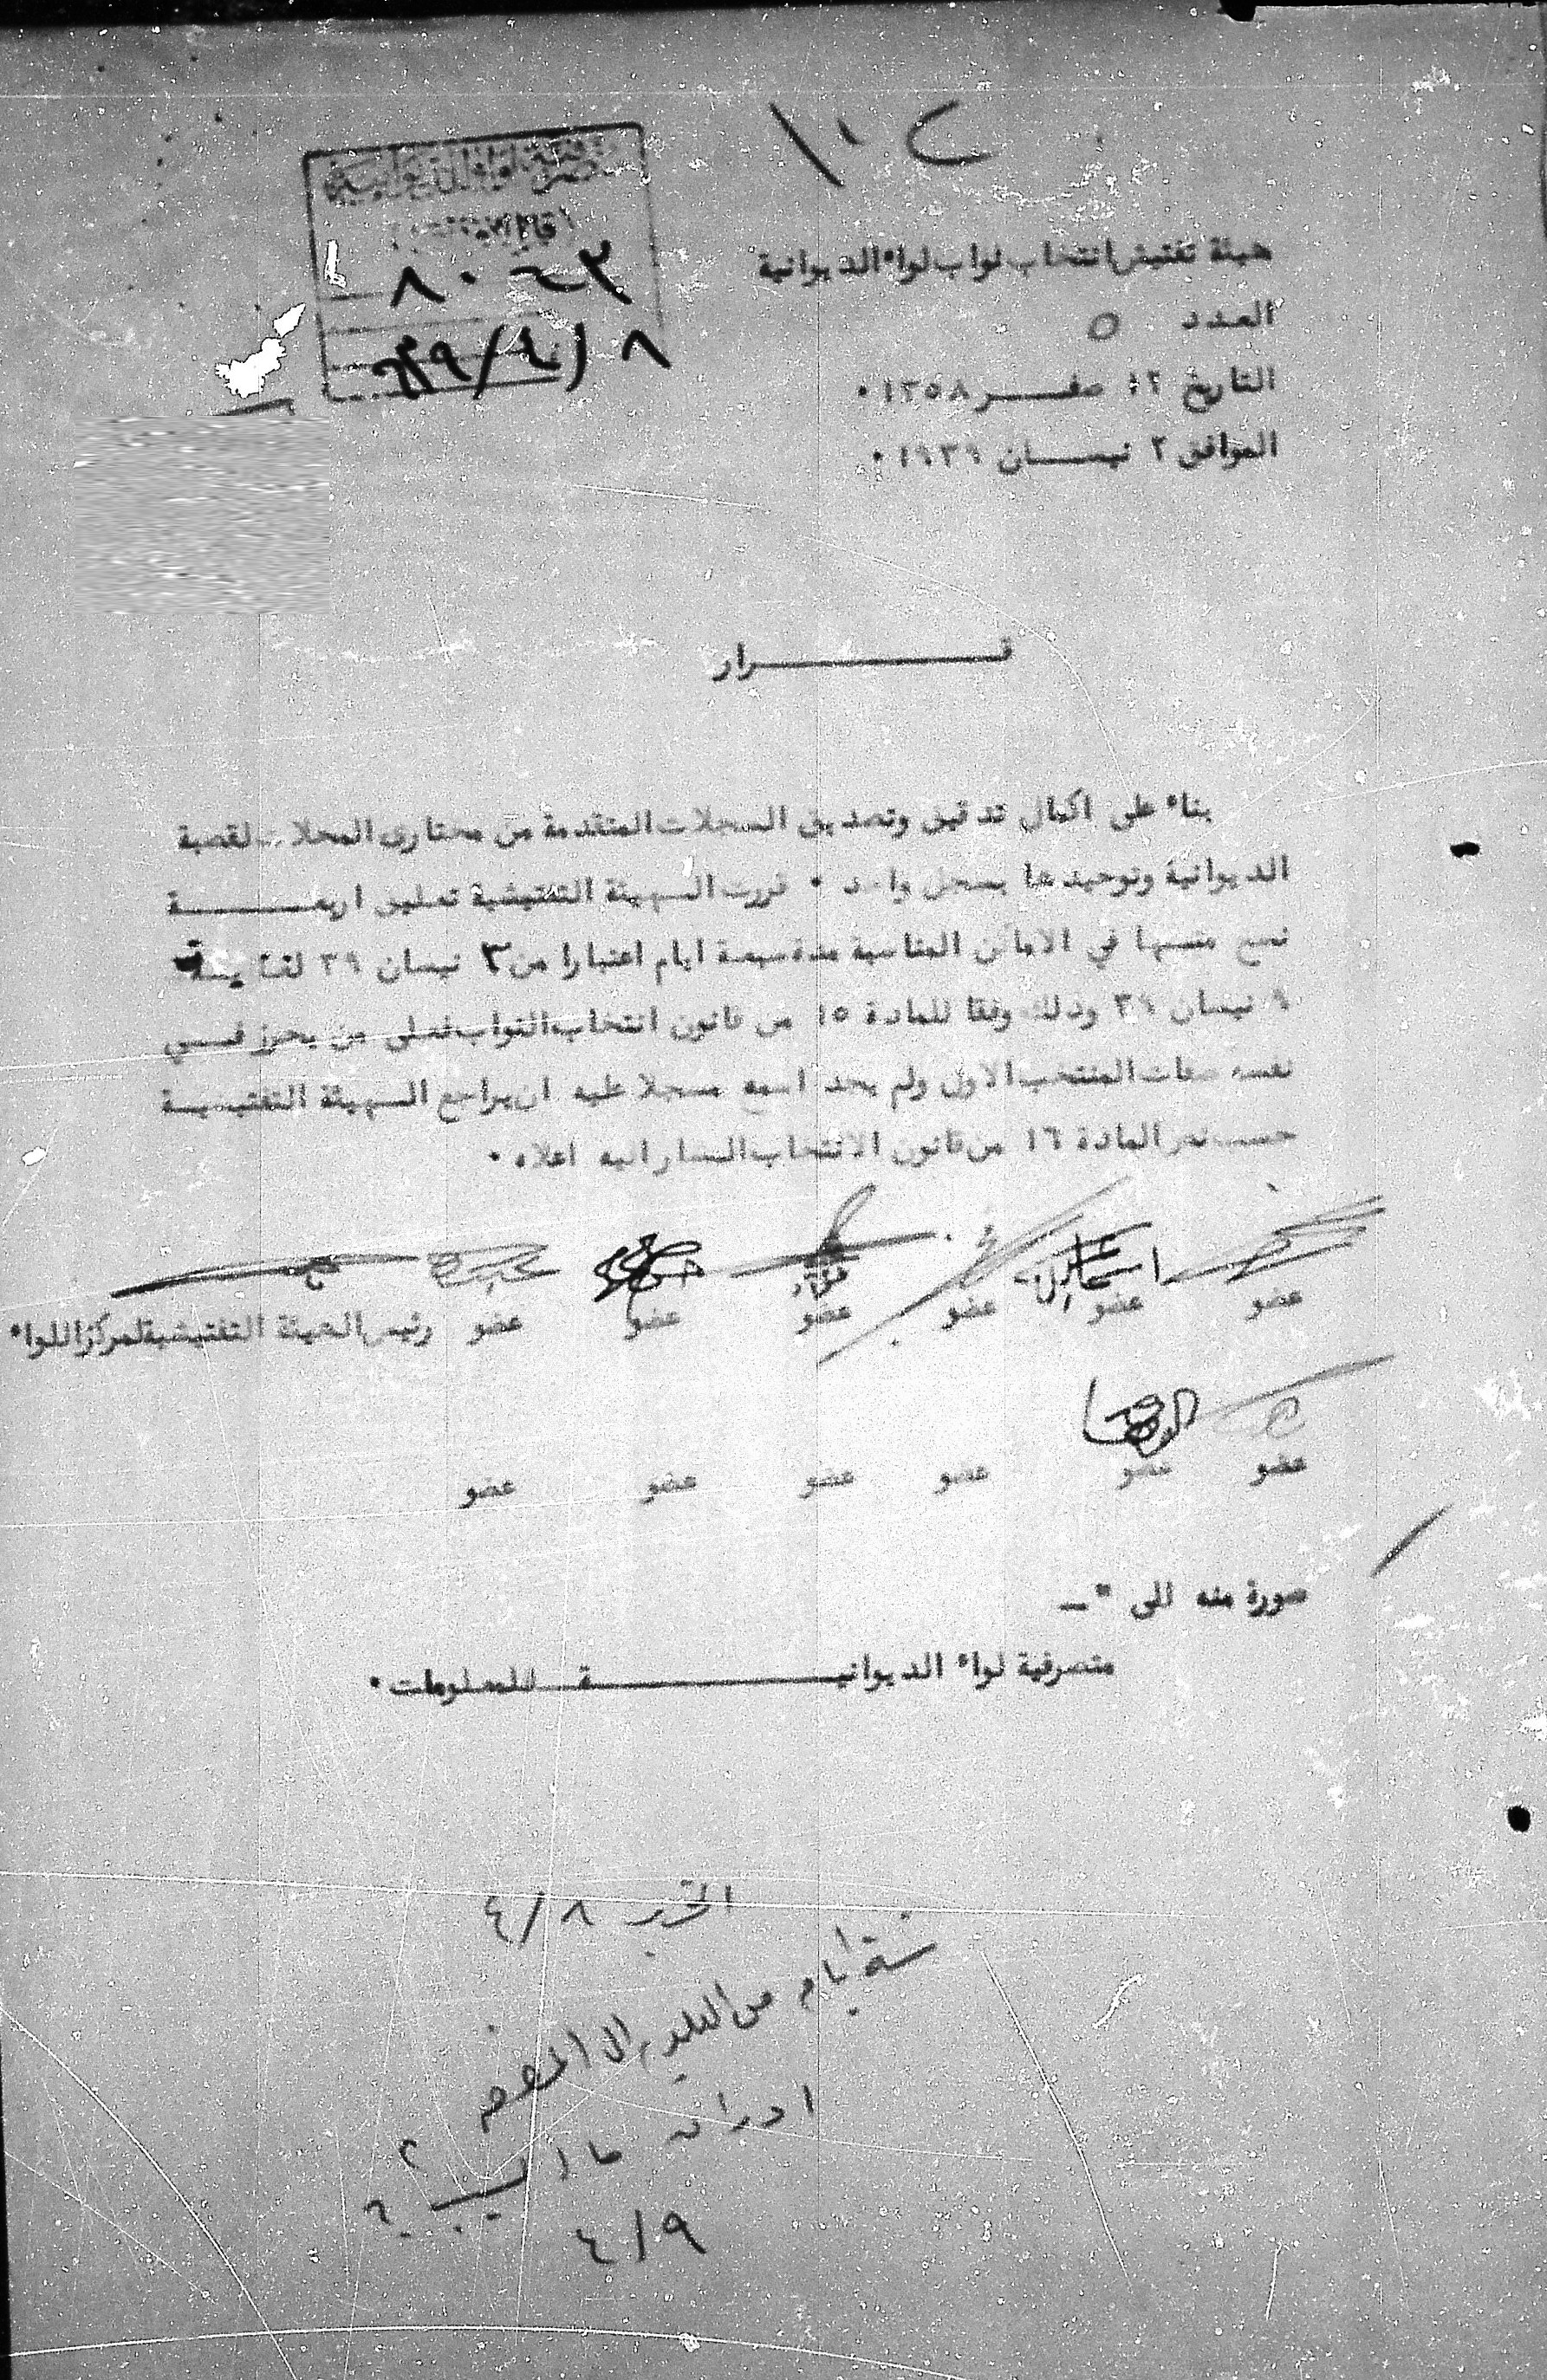 هيئة تفتيش انتخاب نواب لواء الديوانية
العدد ٥
التاريخ ١٢ صفـــر ١٣٥٨.
الموافق ٢ نيســـان ١٩٣٩.
٨/٤/٩٣٩
قـــــــــرار
بناء على اكمال تدقيق وتصديق السجلات المتقدمة من مختارى المحلات لقصبة
الديوانية وتوحيدها بسجل واحد . قررت الهيئة التفتيشية تعليق اربعـــــة
نسخ منسها في الاماكن المناسبة مدة سبعة ايام اعتبارا من ٣ نيسان ٣٩ لغاية
٩ نيسان ٣٩ وذلك وفقا للمادة ١٥ من قانون انتخاب النواب فعلى من يحرز فـــي
نفسه صفات المنتخب الاول ولم يجد اسمه مسجلا عليه ان يراجع الهيئة التفتيشيـــة
حسب نص المادة ١٦ من قانون الانتخاب المشار اليه اعلاه .
اسماعيل
عضو عضو عضو عضو عضو عضو رئيس الهيئة التفتيشية لمركز اللواء
عضو عضو عضو عضو عضو عضو
صورة منه الى -
متصرفية لواء الديوانيـــــــــة للمعلومات .
٤/٨
ايام من
ما السبب ؟
٤/٩